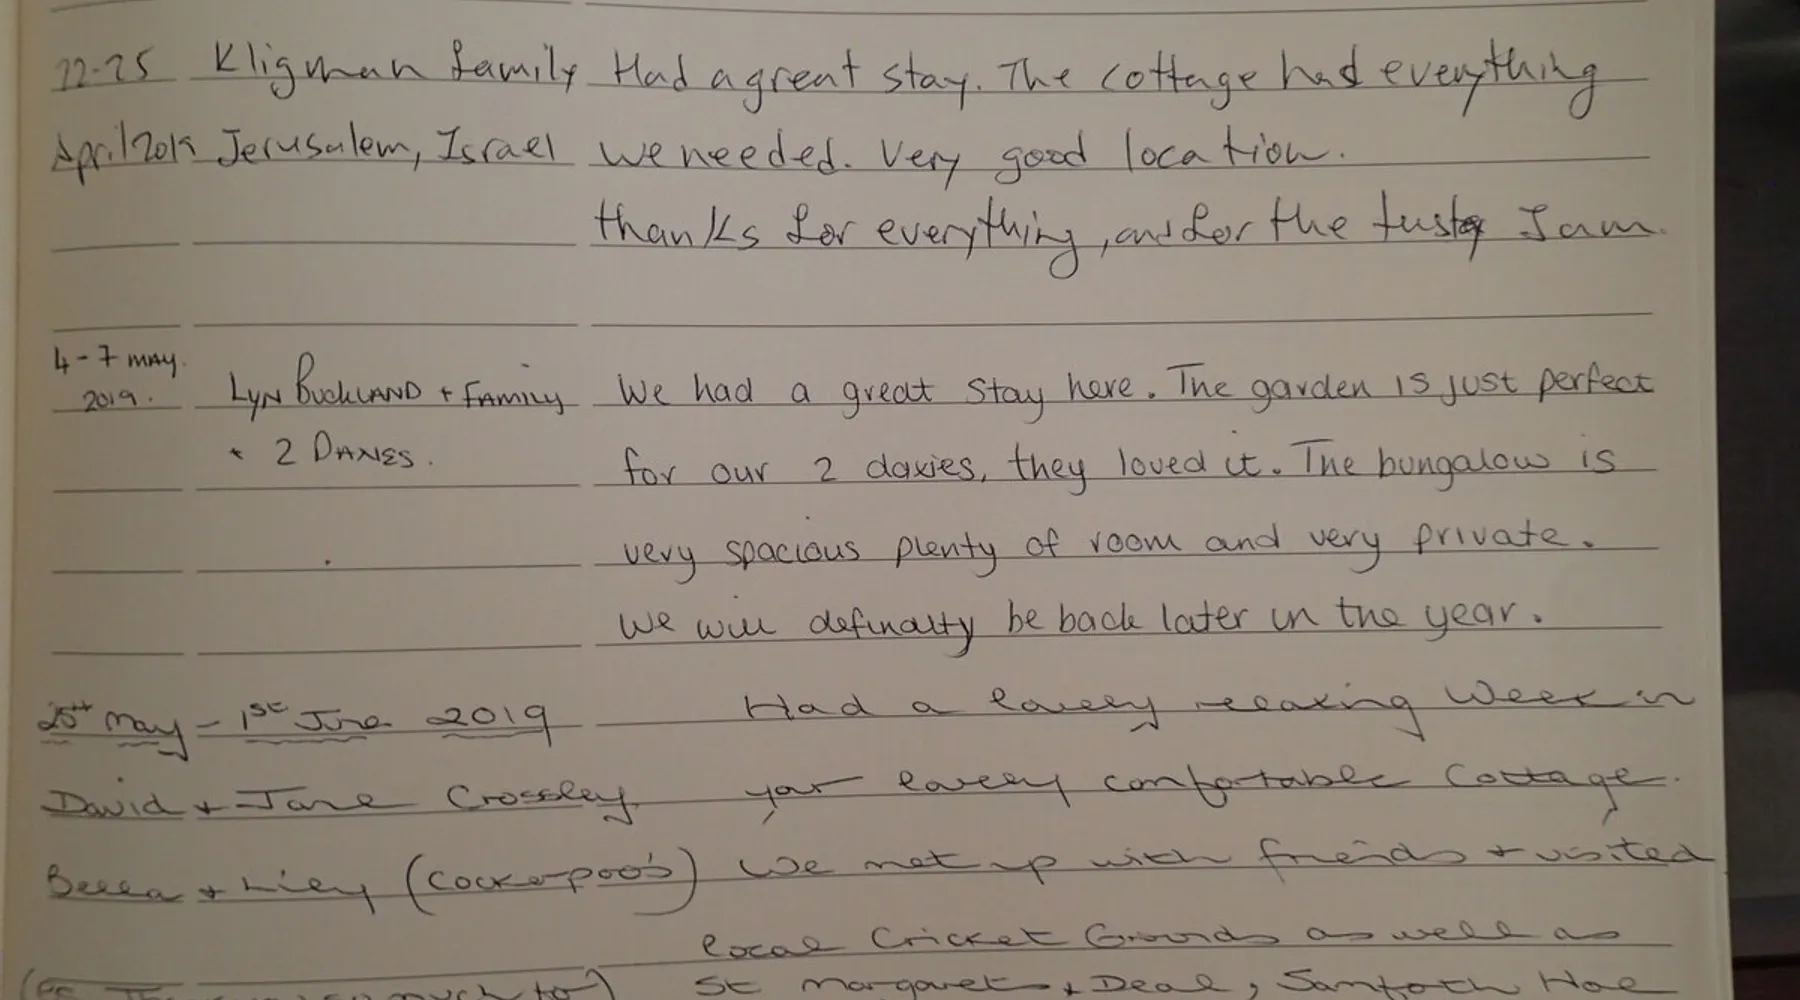 22-25 Kligman family Had a great stay. The cottage had everything
April 2019 Jerusalem, Israel we needed. Very good location.
thanks for everything, and for the Jam.
4-7 MAY.
2019. LYN BUCKLAND + FAMILY We had a great stay here. The garden is just perfect
+ 2 DAXIES. for our 2 daxies, they loved it. The bungalow is
very spacious plenty of room and very private.
We will definalty be back later in the year.
25th May - 1st June 2019 Had a lovely relaxing week in
David + Jane Crossley your lovely comfortable Cottage.
Bella + Lily (Cockerpoo's) We met up with friends + visited
local Cricket Grounds as well as
St Margaret + Deal, Hoe